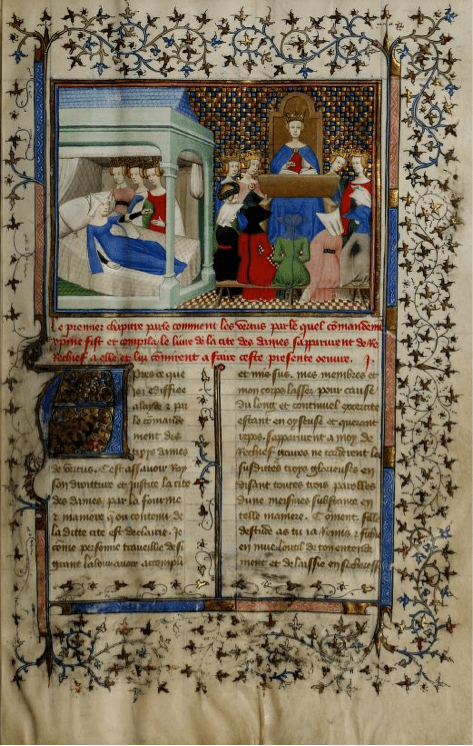 Le premier chapitre parle comment les vertus par le quel comandement
xpine fist et compila le livre de la cite des dames saparurent de Re
Rechief a elle et lui commirent a faire ceste presente oeuvre. .j.
Apres ce que
joz ediffiee
a layde et par
le comande
ment des
troys dames
de vertus. Cest assavoir Ray
son droitture et justice la cite
des dames par la fourme
et maniere que ou contenu de
la ditte cite est declairie. Je
come personne travaillee de si
grant labour avoir acompli
et mis sus. mes membres et
mon corps lassez pour cause
du long et continuel excercite
estant en oyseuse et querant
repos. saparurent a moy de
Rechief gaires ne tarderent les
susdittes troys glorieuses en
disant toutes troys parolles
dune mesmes substance en
telle maniere. Coment fille
destude as tu ja Remis et fichie
en mue loutil de ton entende
ment et delaissie en secheresse